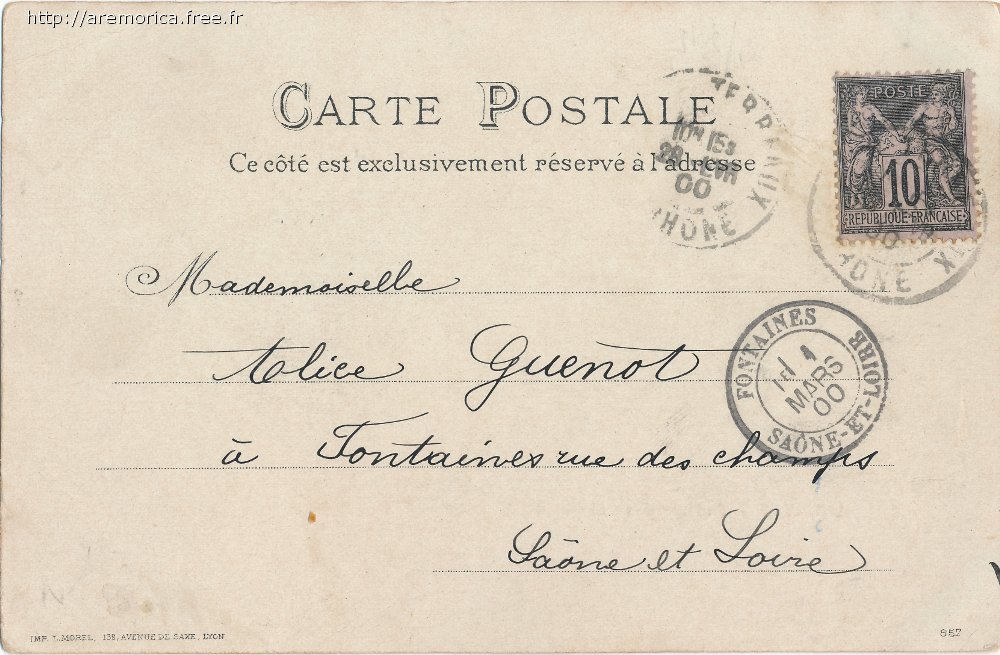 http://aremorica.free.fr
CARTE POSTALE
Ce côté est exclusivement réservé à l'adresse
PERREUX
10H 15S
28 FEVR
00
RHONE
POSTE
10
REPUBLIQUE FRANCAISE
RHONE
Mademoiselle
Alice Guenot
à Fontaines rue des champs
Saône et Loire
FONTAINES
1
MARS
00
SAÔNE-ET-LOIRE
IMP. L. MOREL, 138, AVENUE DE SAXE, LYON
957